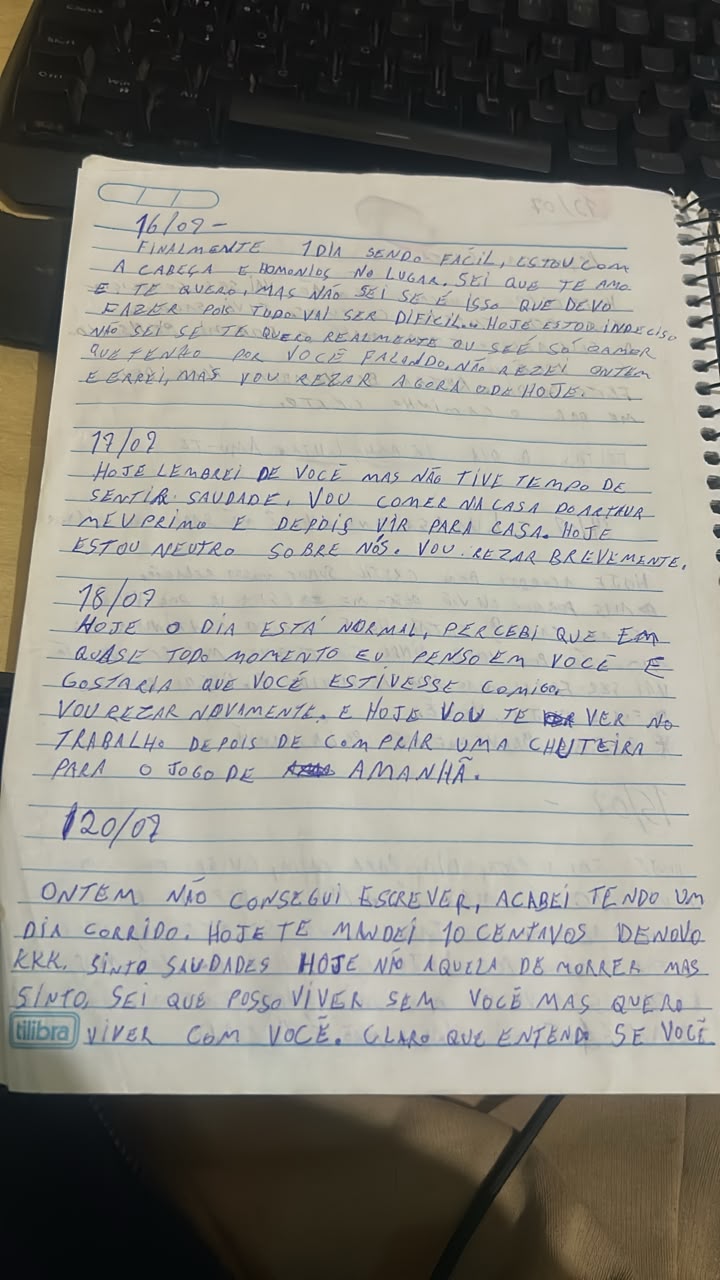 16/07 -
FINALMENTE 1 DIA SENDO FÁCIL, ESTOU COM
A CABEÇA E HOMONIOS NO LUGAR. SEI QUE TE AMO
E TE QUERO, MAS NÃO SEI SE É ISSO QUE DEVO
FAZER POIS TUDO VAI SER DIFICIL. HOJE ESTOU INDECISO
NÃO SEI SE TE QUERO REALMENTE OU SE É SÓ O AMOR
QUE TENHO POR VOCÊ FALANDO. NÃO REZEI ONTEM
E ERREI, MAS VOU REZAR AGORA O DE HOJE.
17/07
HOJE LEMBREI DE VOCÊ MAS NÃO TIVE TEMPO DE
SENTIR SAUDADE. VOU COMER NA CASA DO ARTHUR
MEU PRIMO E DEPOIS VIR PARA CASA. HOJE
ESTOU NEUTRO SOBRE NÓS. VOU REZAR BREVEMENTE.
18/07
HOJE O DIA ESTÁ NORMAL, PERCEBI QUE EM
QUASE TODO MOMENTO EU PENSO EM VOCÊ E
GOSTARIA QUE VOCÊ ESTIVESSE COMIGO.
VOU REZAR NOVAMENTE. E HOJE VOU TE VER NO
TRABALHO DEPOIS DE COMPRAR UMA CHUTEIRA
PARA O JOGO DE AMANHÃ.
20/07
ONTEM NÃO CONSEGUI ESCREVER, ACABEI TENDO UM
DIA CORRIDO. HOJE TE MANDEI 10 CENTAVOS DENOVO
KKK. SINTO SAUDADES HOJE NÃO AQUELA DE MORRER MAS
SINTO. SEI QUE POSSO VIVER SEM VOCÊ MAS QUERO
VIVER COM VOCÊ. CLARO QUE ENTENDO SE VOCÊ
tilibra